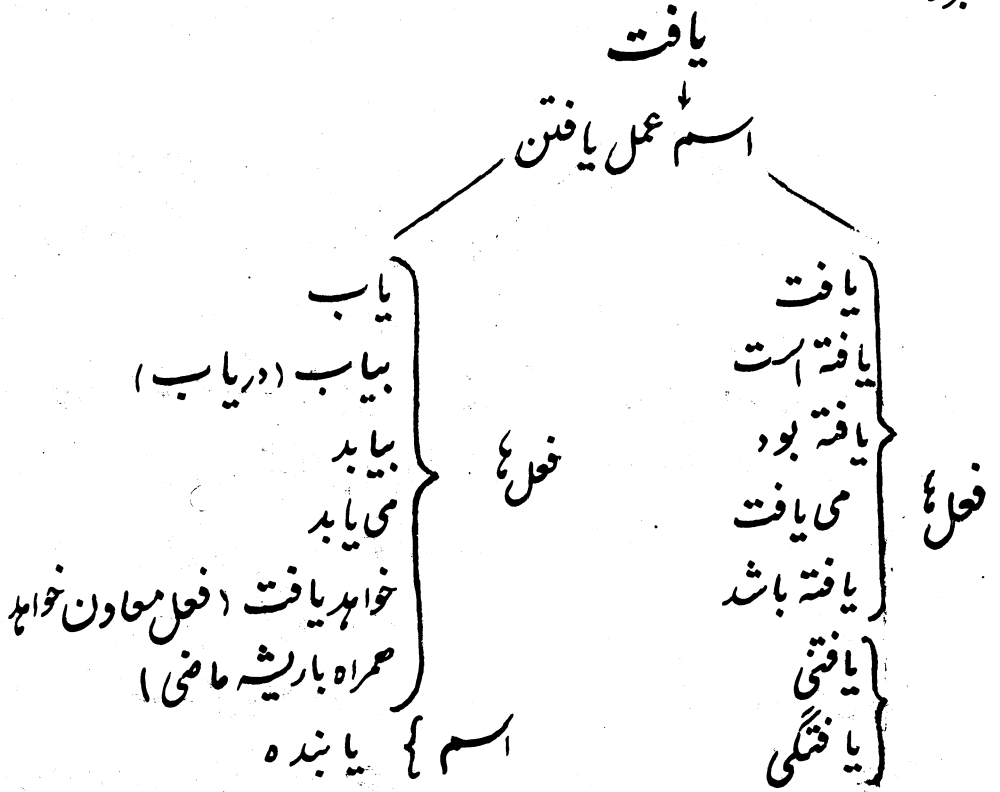 یافت
↓
اسم عمل یافتن
فعل‌ها
یافت
یافته است
یافته بود
می یافت
یافته باشد
یافتنی
یافتگی
فعل‌ها
یاب
بیاب (دریاب)
بیابد
می یابد
خواهد یافت (فعل معاون خواهد
همراه با ریشه ماضی)
اسم { یابنده